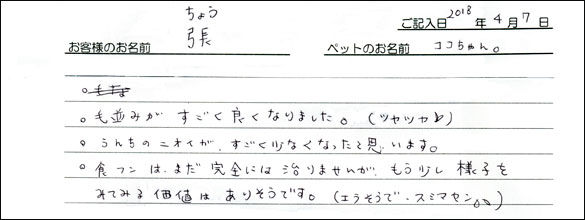 ちょう
ご記入日 2018 年 4 月 7 日
お客様のお名前 張
ペットのお名前 ココちゃん。
。毛並みが すごく良くなりました。(ツヤツヤ♪)
。うんちのニオイが、すごく少なくなったと思います。
。食フンは、まだ完全には治りませんが、もう少し様子を
みてみる価値は ありそうです。(エラそうで、スミマセン